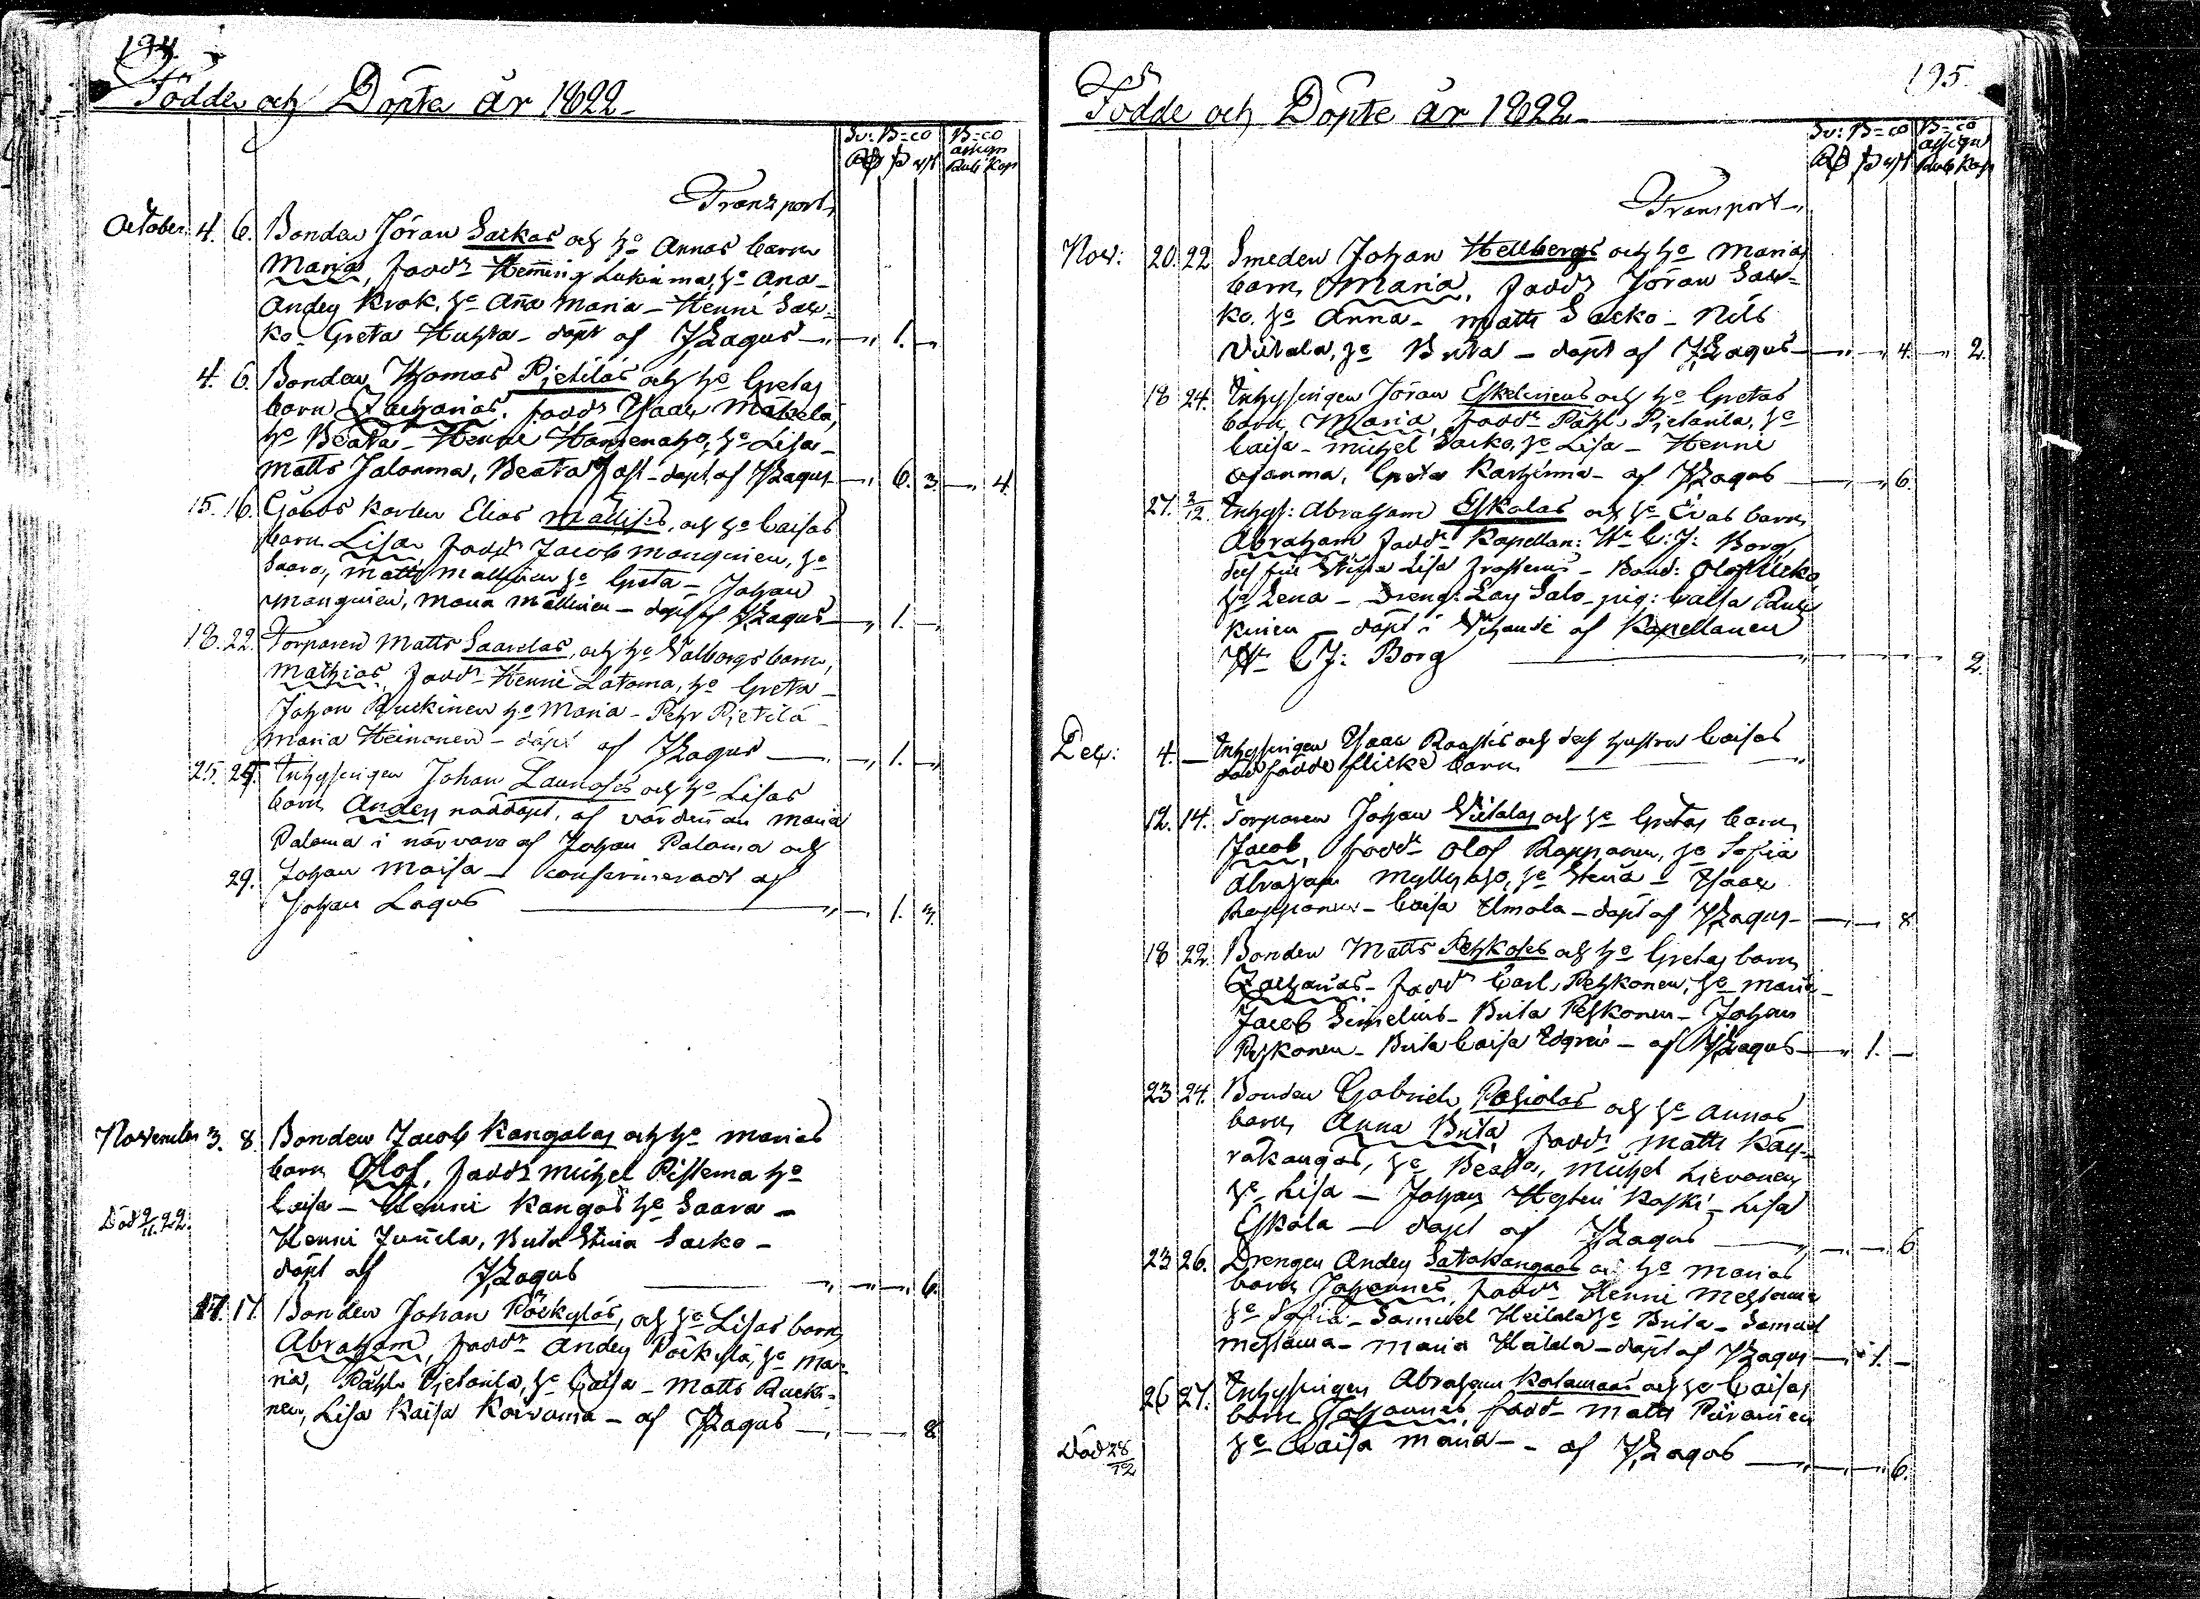 194.
Födde och Döpte år 1822.
Sv: B=co B=co
assign
Rub Kop
Transport,
October 4. 6. Bonden Jöran Sarkas och h:o Annas barn
Maria, fadd:r Henning Lukinma, h:o Ana -
Anders Krok, h:o Ana Maria - Henric Sar-
ko - Greta Huhta - döpt af J Lagus 1.
4. 6. Bonden Thomas Pietiläs och h:o Gretas
barn Zacharias, fadd:r Isaac Mäkelä,
h:o Beata - Henric h:o Lisa -
Matts Jaloma, Beata - döpt af J Lagus 6. 3. 4.
15. 16. Elias Mällises, och h:o Caisas
barn Lisa, fadd:r Jacob Manguinen, h:o
Saara, Matts Mällinen h:o Greta - Johan
Manguinen, Maria Mällinen - döpt af J Lagus 1.
18. 22. Torparen Matts Saarelas, och h:o Valborgs barn,
Mathias, fadd:r Henric Latoma, h:o Greta -
Johan Ruckinen h:o Maria - Pehr Pietilä
Maria Heinonen - döpt af J Lagus 1.
25. 29. Inhysingen Johan Launoses och h:o Lisas
barn Anders nöddöpt, af värdinnan Maria
Paloma i närvaro af Johan Paloma och
29. Johan Maisa - confirmeradt af
Johan Lagus 1. 3.
November 3. 8. Bonden Jacob Kangalas och h:o Marias
barn Olof, fadd:r Michel Pistema h:o
Caisa - Henric Kangas h:o Saara -
Död 9/11 22. Henric Junela, Brita Stina Sarko -
döpt af J Lagus 6.
17. 17. Bonden Johan Pöckyläs, och h:o Lisas barn
Abraham, fadd:r Anders Pöckylä, h:o Ma-
ria, Påhl Pietarila, h:o Caisa - Matts Rucki-
nen, Lisa Kaisa Koivuma - af J Lagus 8.
195.
Födde och Döpte år 1822.
Sv: B=co B=co
assign
Rub Kop
Transport,
Nov: 20. 22. Smeden Johan Hellbergs och h:o Marias
barn Maria, fadd:r Jöran Sar-
ko, h:o Anna - Matts Sarko - Nils
Viitala, h:o Brita - döpt af J Lagus 4. 2.
18 24. Inhysingen Jöran Eskelinens och h:o Gretas
barn Maria, fadd:r Påhl Pietarila, h:o
Caisa - Michel Sarko, h:o Lisa - Henric
Ojanma, Greta Karhinma - af J Lagus 6.
27. 2/12. Inhys: Abraham Eskolas och h:o Evas barn
Abraham fadd:r Kapellan: H:r C: J: Borg,
dess fru Stina Lisa - Bond: Olof
h:o Lena - Dreng: Lars Salo - pig: Caisa Ruuc-
kinen - döpt i af Kapellanen
H:r C J: Borg 2.
Dec: 4. Inhysingen Isaac Raastis och dess hustru Caisas
dödfödde flicke barn
12. 14. Torparen Johan Viitalas och h:o Gretas barn
Jacob, fadd:r Olof Rappanen, h:o Sofia
Abraham Myllyaho, h:o Stina - Isaac
Rappanen - Caisa Ilmola - döpt af J Lagus 8
18 22. Bonden Matts Pehkoses och h:o Gretas barn
Zacharias - fadd:r Carl Pehkonen, h:o Maria -
Jacob Simelius - Brita Pehkonen - Johan
Pehkonen - Brita Caisa Edgren - af J Lagus 1.
23 24. Bonden Gabriels Pohiolas och h:o Annas
barn Anna Brita, fadd:r Matts Käy-
räkangas, h:o Beata, Michel Lievonen
h:o Lisa - Johan Koski - Lisa
Eskola - döpt af J Lagus 6
23 26. Drengen Anders Satokangas och h:o Marias
barn Johannes, fadd:r Henric Metsama
h:o Sofia - Samuel Heilala h:o Brita - Samuel
Metsama - Maria Heilala - döpt af J Lagus 1.
26 27. Inhysingen Abraham Kalamaas och h:o Caisas
barn Johannes, fadd:r Matts Puranen
Död 28/12 h:o Caisa Maria - af J Lagus 6.